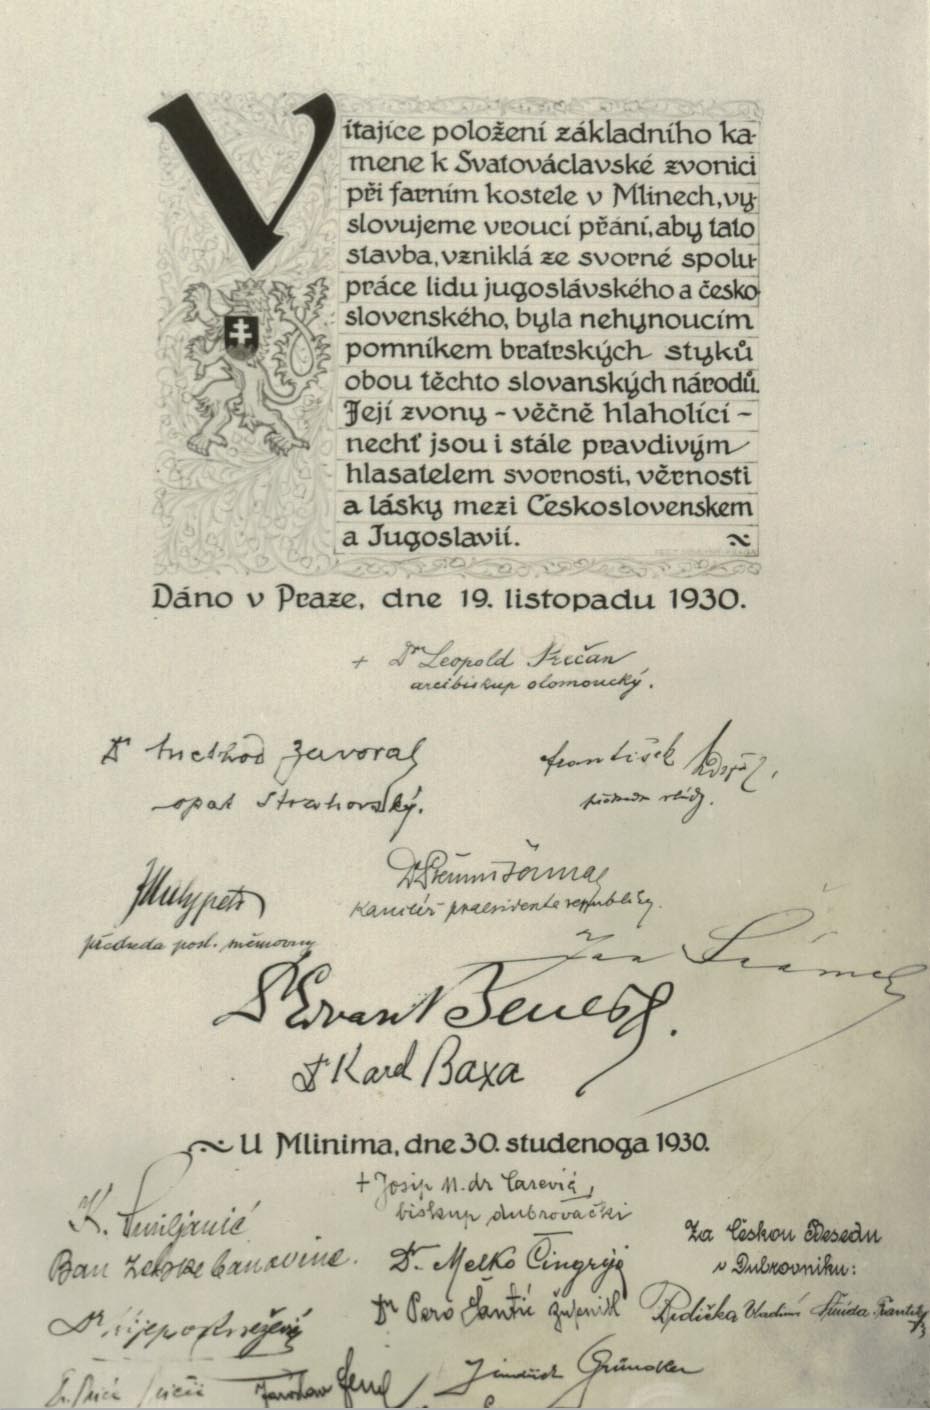 Vítajíce položení základního ka-
mene k Svatováclavské zvonici
při farním kostele v Mlinech, vy-
slovujeme vroucí přání, aby tato
stavba, vzniklá ze svorné spolu-
práce lidu jugoslávského a česko-
slovenského, byla nehynoucím
pomníkem bratrských styků
obou těchto slovanských národů.
Její zvony - věčně hlaholící -
nechť jsou i stále pravdivým
hlasatelem svornosti, věrnosti
a lásky mezi Československem
a Jugoslavií.
Dáno v Praze, dne 19. listopadu 1930.
+ Dr Leopold Prečan
arcibiskup olomoucký.
Dr Method Zavoral
opat Strahovský.
František
předseda vlády.
Dr Přemysl Šámal
kancléř presidenta republiky.
JMalypetr
předseda posl. sněmovny
Jan Šrámek
Dr Edvard Beneš.
Dr Karel Baxa
U Mlinima, dne 30. studenoga 1930.
+ Josip M. dr Carević,
biskup dubrovački
K. Smiljanić
Ban Zetske banovine.
Dr. Melko Čingrija
Za Českou Besedu
v Dubrovniku:
Dr Pero
Vladimír
Jaroslav
Jindřich Gründler